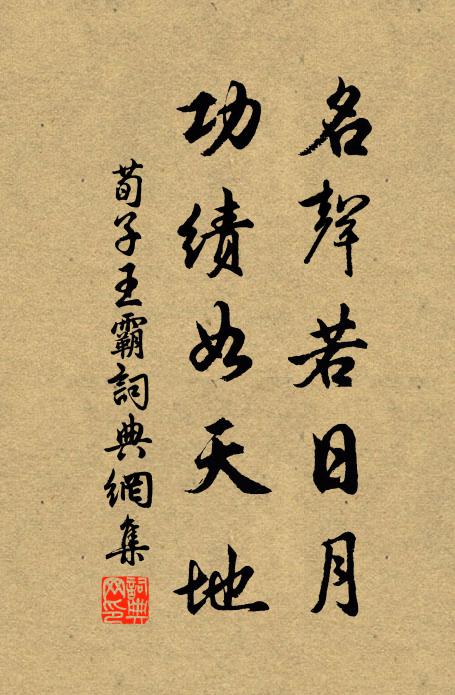 名聲若日月
功績如天地
荀子王霸詞典網集
詞典網印